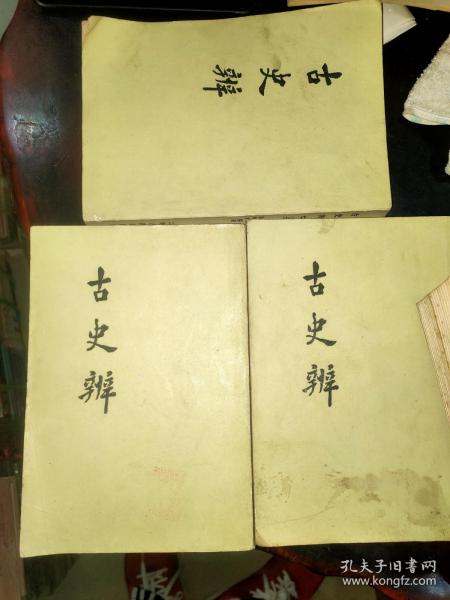 古史辨
古史辨
古史辨
孔夫子旧书网
www.kongfz.com